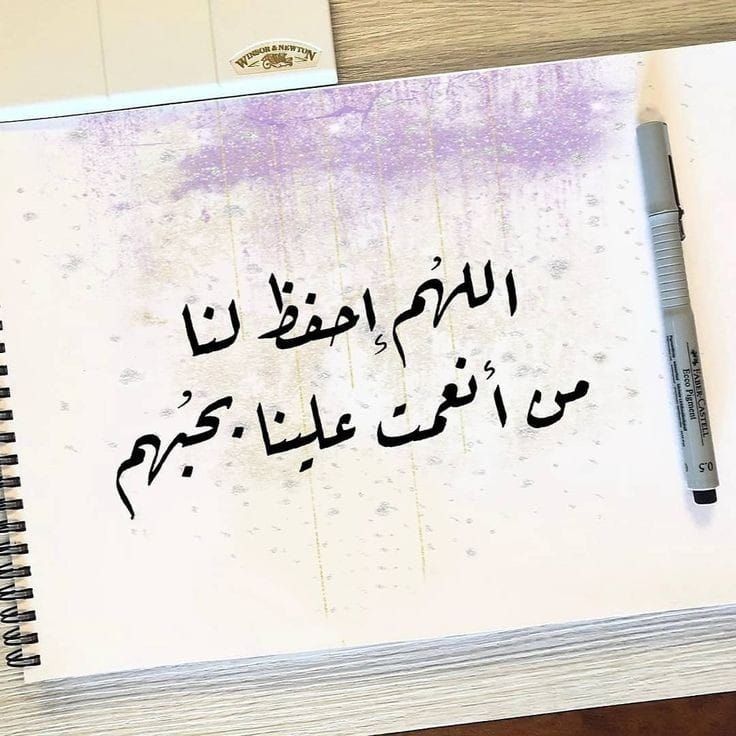 WINSOR & NEWTON
اللهُم إحفظ لنا
من أنعمت علينا بحبُهم
FABER-CASTELL
Ecco Pigment
0.5